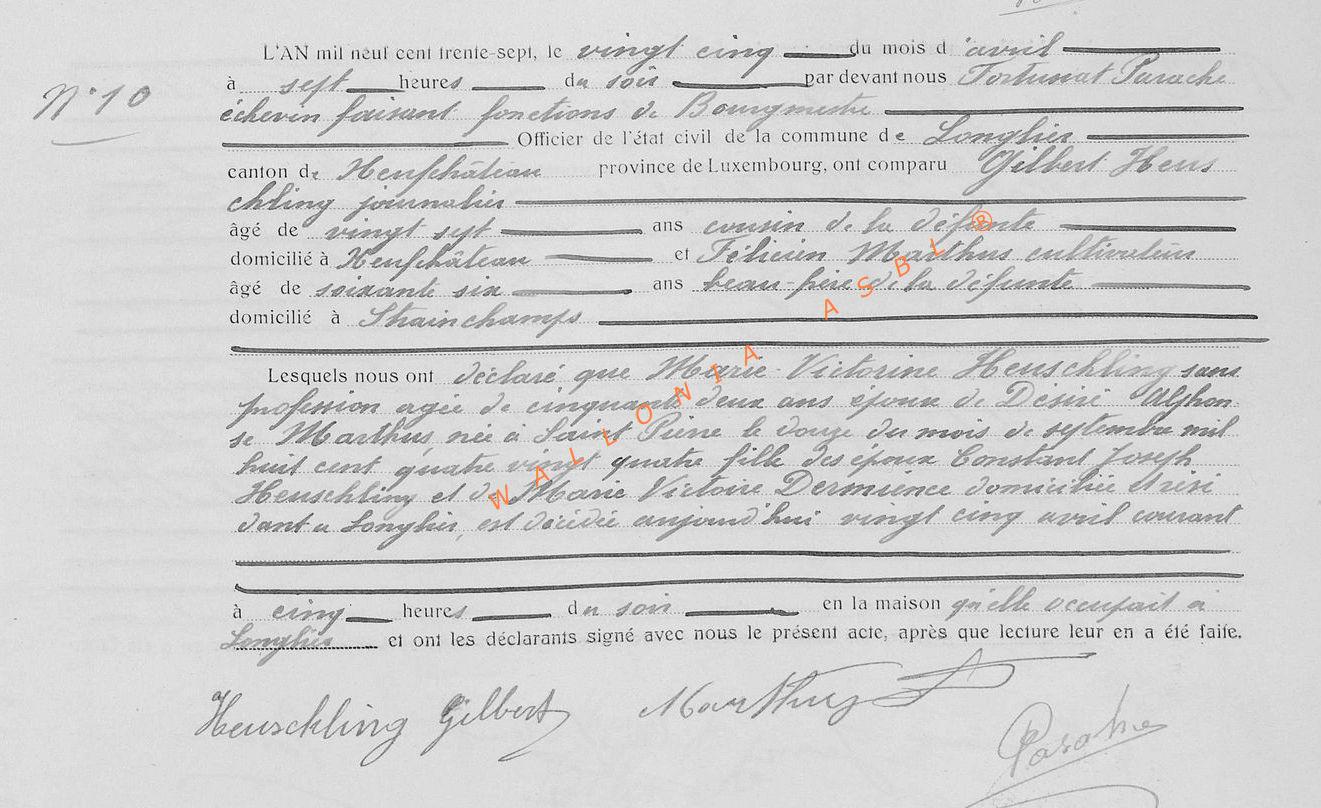 L'AN mil neuf cent trente-sept, le vingt cinq du mois d'avril
N° 10
à sept heures du soir par devant nous Fortunat Parache
échevin faisant fonctions de Bourgmestre
Officier de l'état civil de la commune de Longlier
canton de Neufchâteau province de Luxembourg, ont comparu Gilbert Heus
chling journalier
âgé de vingt sept ans cousin de la défunte
domicilié à Neufchâteau et Félicien Marthus cultivateur
âgé de soixante six ans beau-frère de la défunte
domicilié à Strainchamps
Lesquels nous ont déclaré que Marie Victorine Heuschling sans
profession agée de cinquante deux ans épouse de Désiré Alphon
se Marthus, née à Saint Pierre le douze du mois de septembre mil
huit cent quatre vingt quatre fille des époux Constant Joseph
Heuschling et de Marie Victoire Dermience domiciliée et rési
dant à Longlier, est décédée aujourd'hui vingt cinq avril courant
à cinq heures du soir en la maison qu'elle occupait à
Longlier et ont les déclarants signé avec nous le présent acte, après que lecture leur en a été faite.
Heuschling Gilbert Marthus
Parache
WALLONIA ASBL ®